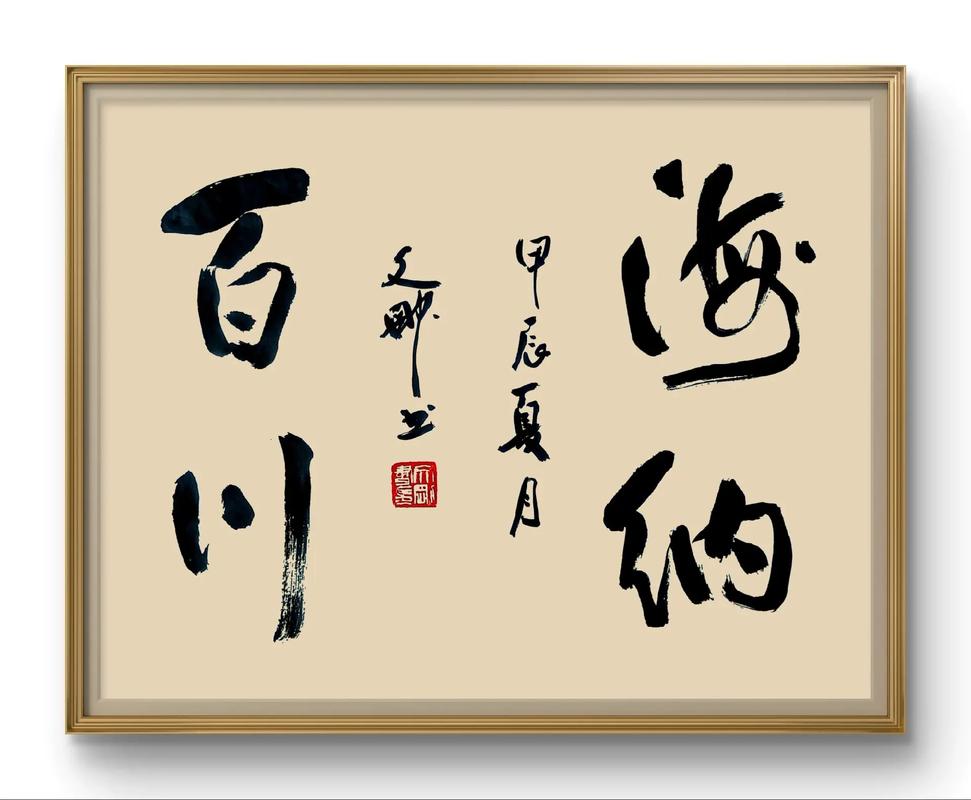 海纳
百川
甲辰夏月
文刚书